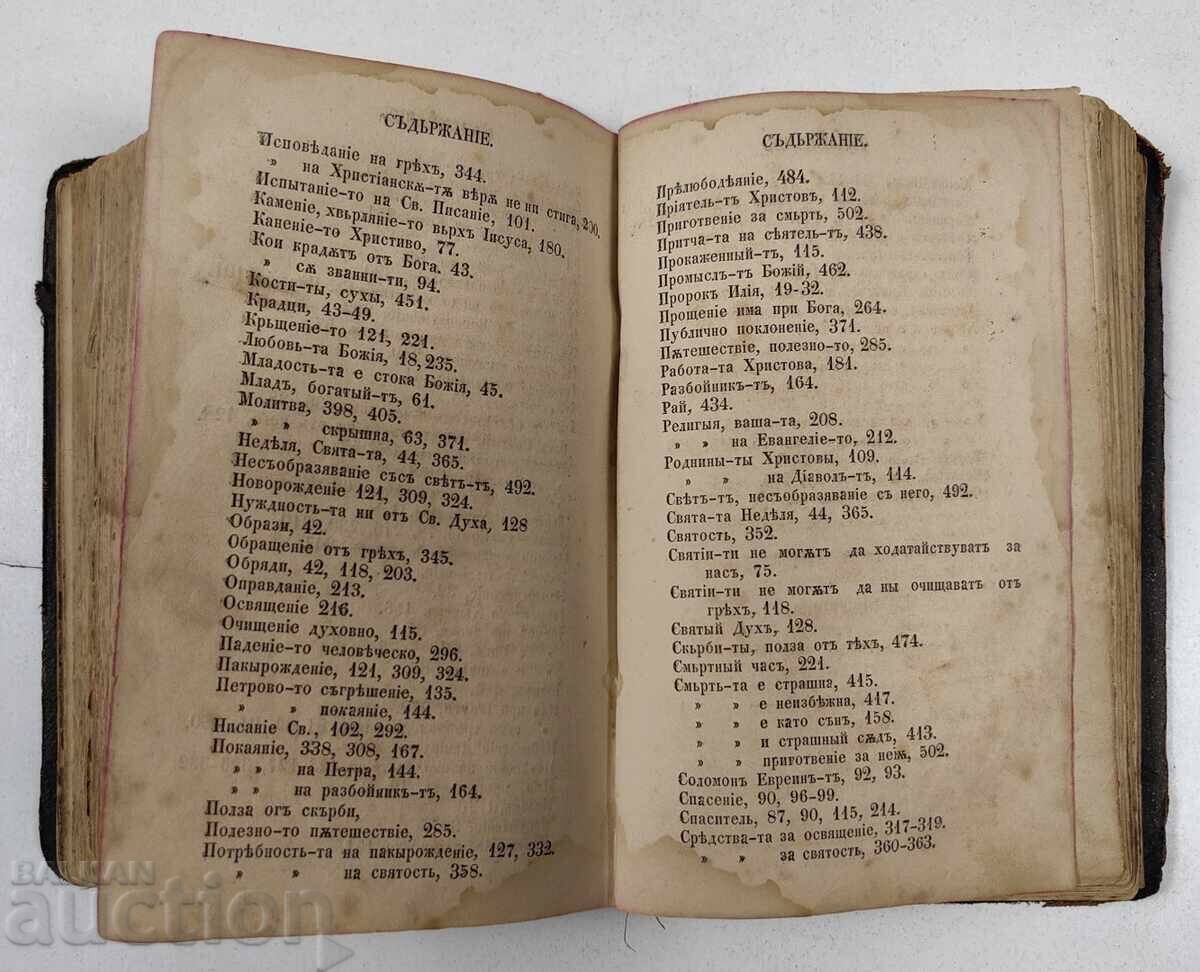 СЪДЬРЖАНІЕ.
Исповѣданіе на грѣхъ, 344.
» на Христіанскѫ-тѫ вѣрѫ не ни стига, 200.
Испытаніе-то на Св. Писаніе, 101.
Каменіе, хвърляніе-то вьрхъ Іисуса, 180.
Каненіе-то Христиво, 77.
Кои крадѫтъ отъ Бога. 43.
» сѫ званни-ти, 94.
Кости-ты, сухы, 451.
Крадци, 43-49.
Крьщеніе-то 121, 221.
Любовь-та Божія, 18, 235.
Младость-та е стока Божія, 45.
Младъ, богатый-тъ, 61.
Молитва, 398, 405.
» » скрышна, 63, 371.
Недѣля, Свята-та, 44, 365.
Несъобразяваніе съсъ свѣтъ-тъ, 492.
Новорожденіе 121, 309, 324.
Нуждность-та ни отъ Св. Духа, 128
Образи, 42.
Обращеніе отъ грѣхъ, 345.
Обряди, 42, 118, 203.
Оправданіе, 213.
Освященіе 216.
Очищеніе духовно, 115.
Паденіе-то человѣческо, 296.
Пакырожденіе, 121, 309, 324.
Петрово-то съгрѣшеніе, 135.
» » покаяніе, 144.
Писаніе Св., 102, 292.
Покаяніе, 338, 308, 167.
» » на Петра, 144.
» » на разбойникъ-тъ, 164.
Полза огъ скърби,
Полезно-то пѫтешествіе, 285.
Потрѣбность-та на пакырожденіе, 127, 332.
» » на святость, 358.
СЪДЬРЖАНІЕ.
Прѣлюбодѣяніе, 484.
Пріятель-тъ Христовъ, 112.
Приготвеніе за смърть, 502.
Притча-та на сѣятель-тъ, 438.
Прокаженный-тъ, 115.
Промыслъ-тъ Божій, 462.
Пророкъ Илія, 19-32.
Прощеніе има при Бога, 264.
Публично поклоненіе, 371.
Пѫтешествіе, полезно-то, 285.
Работа-та Христова, 181.
Разбойникъ-тъ, 164.
Рай, 434.
Религыя, ваша-та, 208.
» » на Евангеліе-то, 212.
Роднины-ты Христовы, 109.
» » на Діаволъ-тъ, 114.
Свѣтъ-тъ, несъобразяваніе съ него, 492.
Свята-та Недѣля, 44, 365.
Святость, 352.
Святіи-ти не могѫтъ да ходатайствуватъ за
насъ, 75.
Святіи-ти не могѫтъ да ны очищаватъ отъ
грѣхъ, 118.
Святый Духъ, 128.
Скърби-ты, полза отъ тѣхъ, 474.
Смьртный часъ, 221.
Смьрть-та е страшна, 415.
» » е неизбѣжна, 417.
» » е като сънъ, 158.
» » и страшный сѫдъ, 413.
» » приготвеніе за неіѫ, 502.
Соломонъ Евреинъ-тъ, 92, 93.
Спасеніе, 90, 96-99.
Спаситель, 87, 90, 115, 214.
Срѣдства-та за освященіе, 317-319.
» » за святость, 360-363.
BALKAN
auction